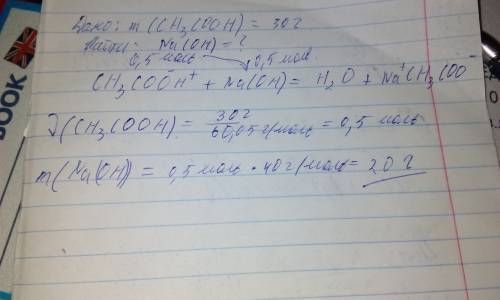 Дано: m(CH₃COOH) = 30 г
Найти: Na(OH) = ?
0,5 моль 0,5 моль
CH₃COOH⁺ + Na(OH) = H₂O + Na⁺CH₃COO⁻
ν(CH₃COOH) = 30г / 60,05 г/моль = 0,5 моль
m(Na(OH)) = 0,5 моль · 40 г/моль = 20 г
BOOK